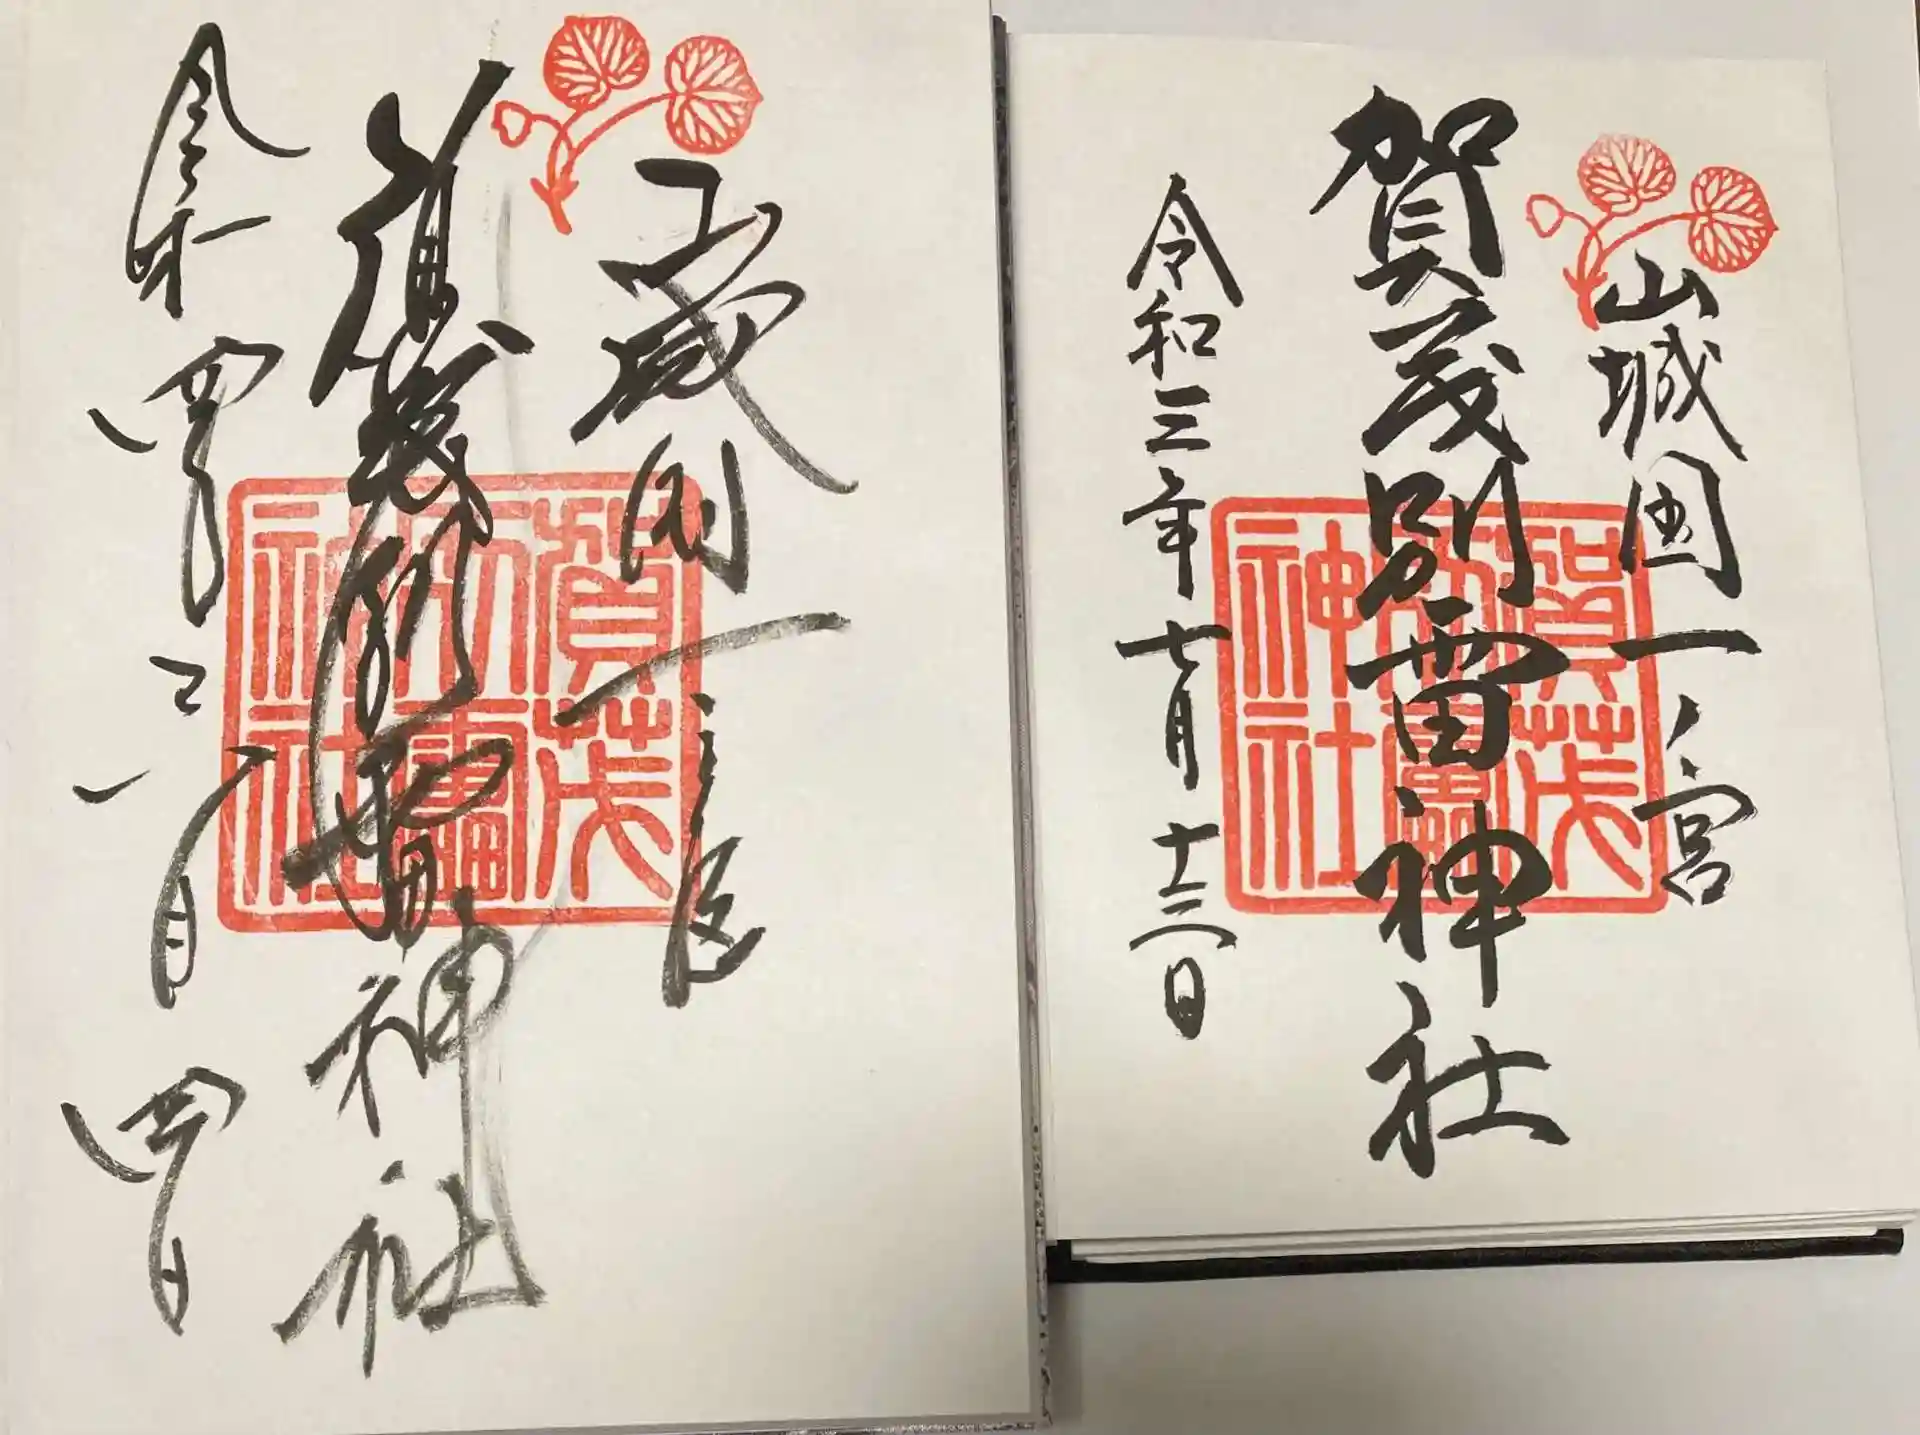 山城国一ノ宮
賀茂別雷神社
令和三年七月十三日
賀茂
別雷
神社
山城国一之宮
賀茂別雷神社
令和四年 月四日
賀茂
別雷
神社